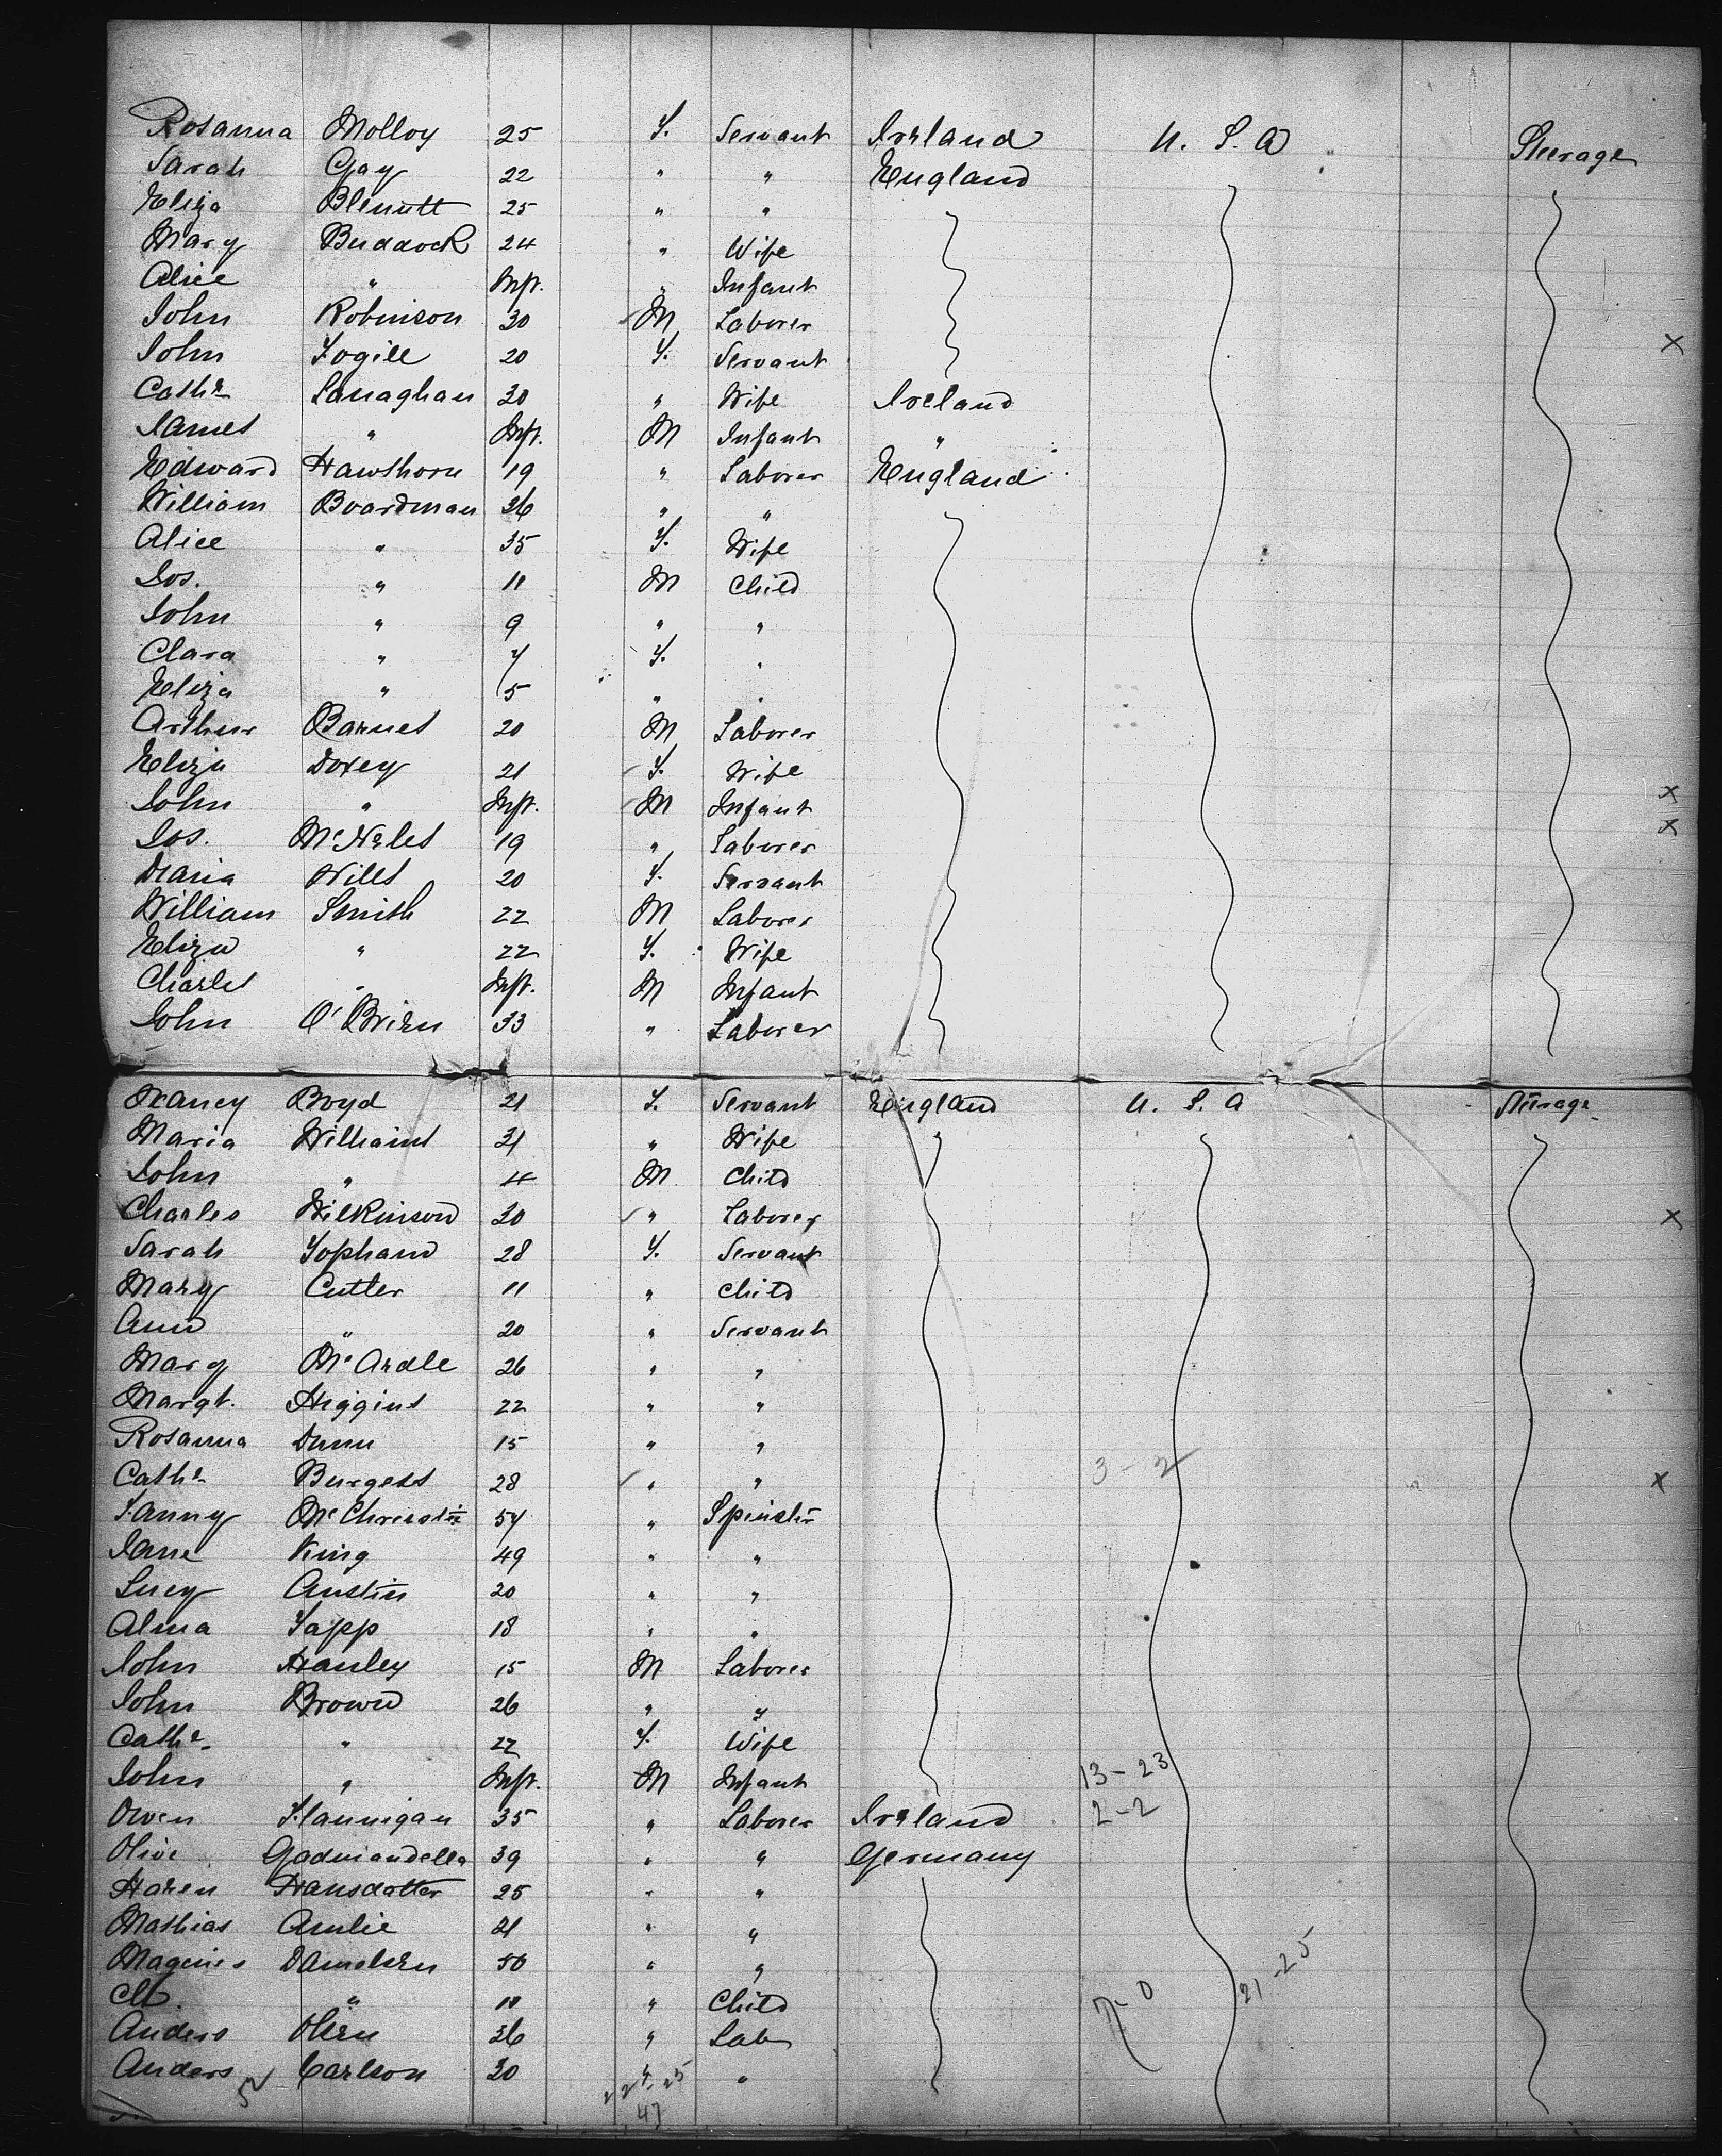 Rosanna Molloy 25 F. Servant Ireland U. S. A Steerage
Sarah Gay 22 " " England
Eliza Blenutt 25 " "
Mary Buddock 24 " Wife
Alice " Inft. " Infant
John Robinson 30 M Laborer
John Fogill 20 F. Servant X
Cathe Lanaghan 30 " Wife Ireland
James " Inft. M Infant "
Edward Hawthorn 19 " Laborer England
William Boardman 36 " "
Alice " 35 F. Wife
Jos. " 11 M Child
John " 9 " "
Clara " 7 F. "
Eliza " 5 " "
Arthur Barnes 20 M Laborer
Eliza Doxey 21 F. Wife
John " Inft. M Infant X
Jos. McNeles 19 " Laborer X
Maria Wills 20 F. Servant
William Smith 22 M Laborer
Eliza " 22 F. Wife
Charles " Inft. M Infant
John O'Brien 33 " Laborer
Nancy Boyd 21 F. Servant England U. S. A Steerage
Maria Williams 31 " Wife
John " 4 M Child
Charles Wilkinson 30 " Laborer X
Sarah 28 F. Servant
Mary Cutler 11 " Child
Ann " 20 " Servant
Mary McArdle 26 " "
Margt. Higgins 22 " "
Rosanna Dunn 15 " "
Cathe Burgess 28 " " 3-2 X
Fanny McChrristie 54 " Spinster
Jane King 49 " "
Lucy Austin 20 " "
Alma Tapp 18 " "
John Hanley 15 M Laborer
John Brown 26 " "
Cathe " 22 F. Wife
John " Inft. M Infant 13-23
Owen Flannigan 35 " Laborer Ireland 2-2
Olive 39 " " Germany
Haren Hansdatter 25 " "
Mathias Amlie 21 " "
Magnus Danielsen 50 " "
" 11 " Child 7-0 21-25
Anders Olsen 36 " Lab
Anders Carlson 30 "
52 47